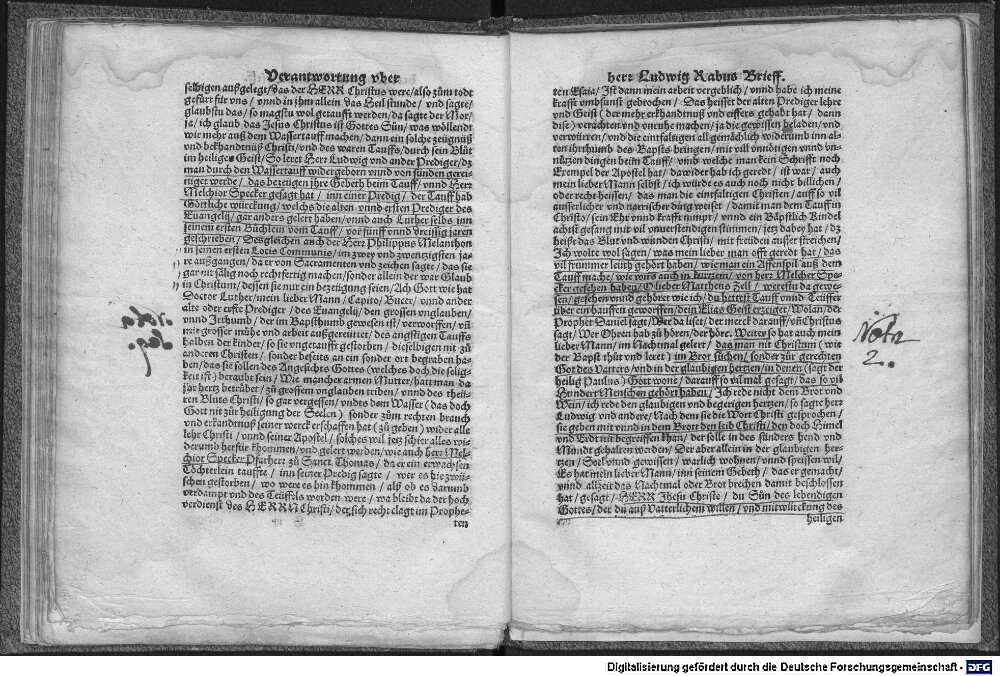 Verantwortung vber
selbigen außgelegt/ das der HERR Christus were/ also zům todt
gefürt für vns / vnnd in jhm allein das Heil stunde/ vnd sagte/
glaubstu das/ so magstu wol getaufft werden/ da sagt der Mor/
ja/ ich glaub das Jesus Christus ist Gottes Sůn/ was wöllendt
wir mehr auß dem Wassertauff machen/ dann ein solche zeügnüß
vnd bekhandtnüß Christi/ vnd des waren Tauffs/ durch sein Blůt
im heiligen Geist/ So leret Herr Ludwig vnd ander Prediger/ dz
man durch den Wassertauff widergeborn vnnd von sünden gerei-
niget werde/ das bezeügen jhre Gebeth beim Tauff/ vnnd Herr
Melchior Specker gesagt hat/ inn einer Predig/ der Tauff hab
Göttliche würckung/ welchs die alten vnnd ersten Prediger des
Euangelij/ gar anders gelert haben/ vnnd auch Luther selbs inn
seinem ersten Büchlein vom Tauff/ vor fünff vnd dreissig jaren
geschrieben/ Desgleichen auch der Herr Philippus Melanthon
in seinen ersten Locis Communis/ im zwey vnd zwentzigsten ja-
re außgangen/ da er von Sacramenten vnd zeichen sagte/ das sie
gar nit sälig noch rechtfertig machen/ sonder allein der war Glaub
in Christum/ dessen sie nur ein bezeügung seien/ Ach Gott wie hat
Doctor Luther/ mein lieber Mann/ Capito/ Bucer/ vnnd ander
alte oder erste Prediger/ des Euangelij/ den grossen vnglauben/
vnnd Irrhumb/ der im Bapsthumb gewesen ist/ verworffen/ vñ
mit grosser mühe vnd arbeit außgereuttet/ des angstigen Tauffs
halben der kinder/ so sie vngetaufft gestorben/ dieselbigen nit zů
anderen Christen/ sonder beseits an ein sonder ort begraben ha-
ben/ das sie sollen des Angesichts Gottes (welches doch die selig-
keit ist) beraubt sein/ Wie mancher armen Mutter/ hatt man da
jhr hertz betrübet/ zů grossem vnglauben triben/ vnnd des theü-
ren Bluts Christi/ so gar vergessen/ vnd es dem Wasser (das doch
Gott nit zůr heiligung der Seelen) sonder zům rechten brauch
vnd erkandtnuß seiner werck erschaffen hat (zů geben) wider alle
lehr Christi/ vnnd seiner Apostel/ solches wil jetz schier alles wi-
derumb herfür khommen/ vnd gelert werden/ wie auch herr Mel-
chior Specker Pfarherr zů Sanct Thomas/ da er ein erwachsen
Töchterlein tauffte/ inn seiner Predig sagte/ wer es hiezwü-
schen gestorben/ wo were es hin khommen/ alß ob es darumb
verdampt vnd des Teüffels worden were/ wa bleibt da der hoch
verdienst des HERRN Christi/ der sich recht clagt im Prophe-
ten
Nota
herr Ludwig Rabus Brieff.
ten Esaia/ Ist dann mein arbeit vergeblich/ vnnd habe ich meine
krafft vmbsunst gebrochen/ Das heisset der alten Prediger lehre
vnd Geist (der mehr erkhandtnuß vnd eiffers gehabt hat/ dann
dise) verachten vnd vnruhe machen/ ja die gewissen beladen/ vnd
verwürren/ vnd die einfaltigen allgemächlich widerumb inn al-
ten jhrthumb des Bapsts bringen/ mit vil vnnötigen vnnd vn-
nützen dingen beim Tauff/ vmb welche man kein Schrifft noch
Exempel der Apostel hat/ dawider hab ich geredt/ ist war/ auch
mein lieber Mann selbst/ ich würde es auch noch nicht billichen/
oder recht heissen/ das man die einfaltigen Christen/ auff so vil
ausserlicher vnd narrischer ding weiset/ damit man dem Tauff in
Christo/ sein Ehr vnnd krafft nimpt/ vnnd ein Bäpstlich Kindel
achtist gesang mit vil vnuerstendigen stimmen/ jetz dabey hat/ dz
heißt das Blut vnd wunden Christi/ mit freüden ausser streichen/
Ich wolte wol sagen/ was mein lieber man offt geredt hat/ das
vil frummer leüth gehört haben/ wie man ein Affenspil auß dem
Tauff mache/ wie wirs auch in kurtzen/ von herr Melcher Spe-
cker gesehen haben/ O lieber Mattheus Zell/ werestu da gewe-
sen/ gesehen vnnd gehöret wie ich/ du hettest Tauff vnnd Teüffer
vber ein hauffen geworffen/ dein Elias Geist erzeiget/ Wolan/ der
Prophet Daniel sagt/ Wer da liset/ der merck darauff/ vñ Christus
sagt/ Wer Ohren hab zů hören/ der höre. Weiter so hat auch mein
lieber Mann/ im Nachtmal gelert/ das man nit Christum (wie
der Bapst thůt vnd leret) im Brot sůchen/ sonder zůr gerechten
Got des Vatters/ vnd in der glaubigen hertzen/ in denen (sagt der
heilig Paulus) Gott wone/ darauff so vil mal gesagt/ das so vil
Hundert Menschen gehört haben/ Ich rede nicht dem Brot vnd
Wein/ ich rede den glaubigen vnd begerigen hertzen/ so sagte herr
Ludwig vnnd andere/ Nach dem sie die Wort Christi gesprochen/
sie geben mit vnnd in dem Brott den leib Christi/ den doch Himel
vnd Erdt nit begreiffen khan/ der solle in des sünders hend vnd
Mündt gehalten werden/ Der aber allein in der glaubigen her-
tzen/ Seel vnnd gewissen/ warlich wohnen/ vnnd speissen wil/
Es hat mein lieber Mann/ inn seinem Gebeth/ das er gemacht/
vnnd allzeit das Nachtmal oder Brot brechen damit beschlossen
hat/ gesagt/ HERR Jhesu Christe/ du Sůn des lebendigen
Gottes/ der du auß Vatterlichem willen/ vnd mitwürckung des
heiligen
Nota
2.
Digitalisierung gefördert durch die Deutsche Forschungsgemeinschaft - DFG